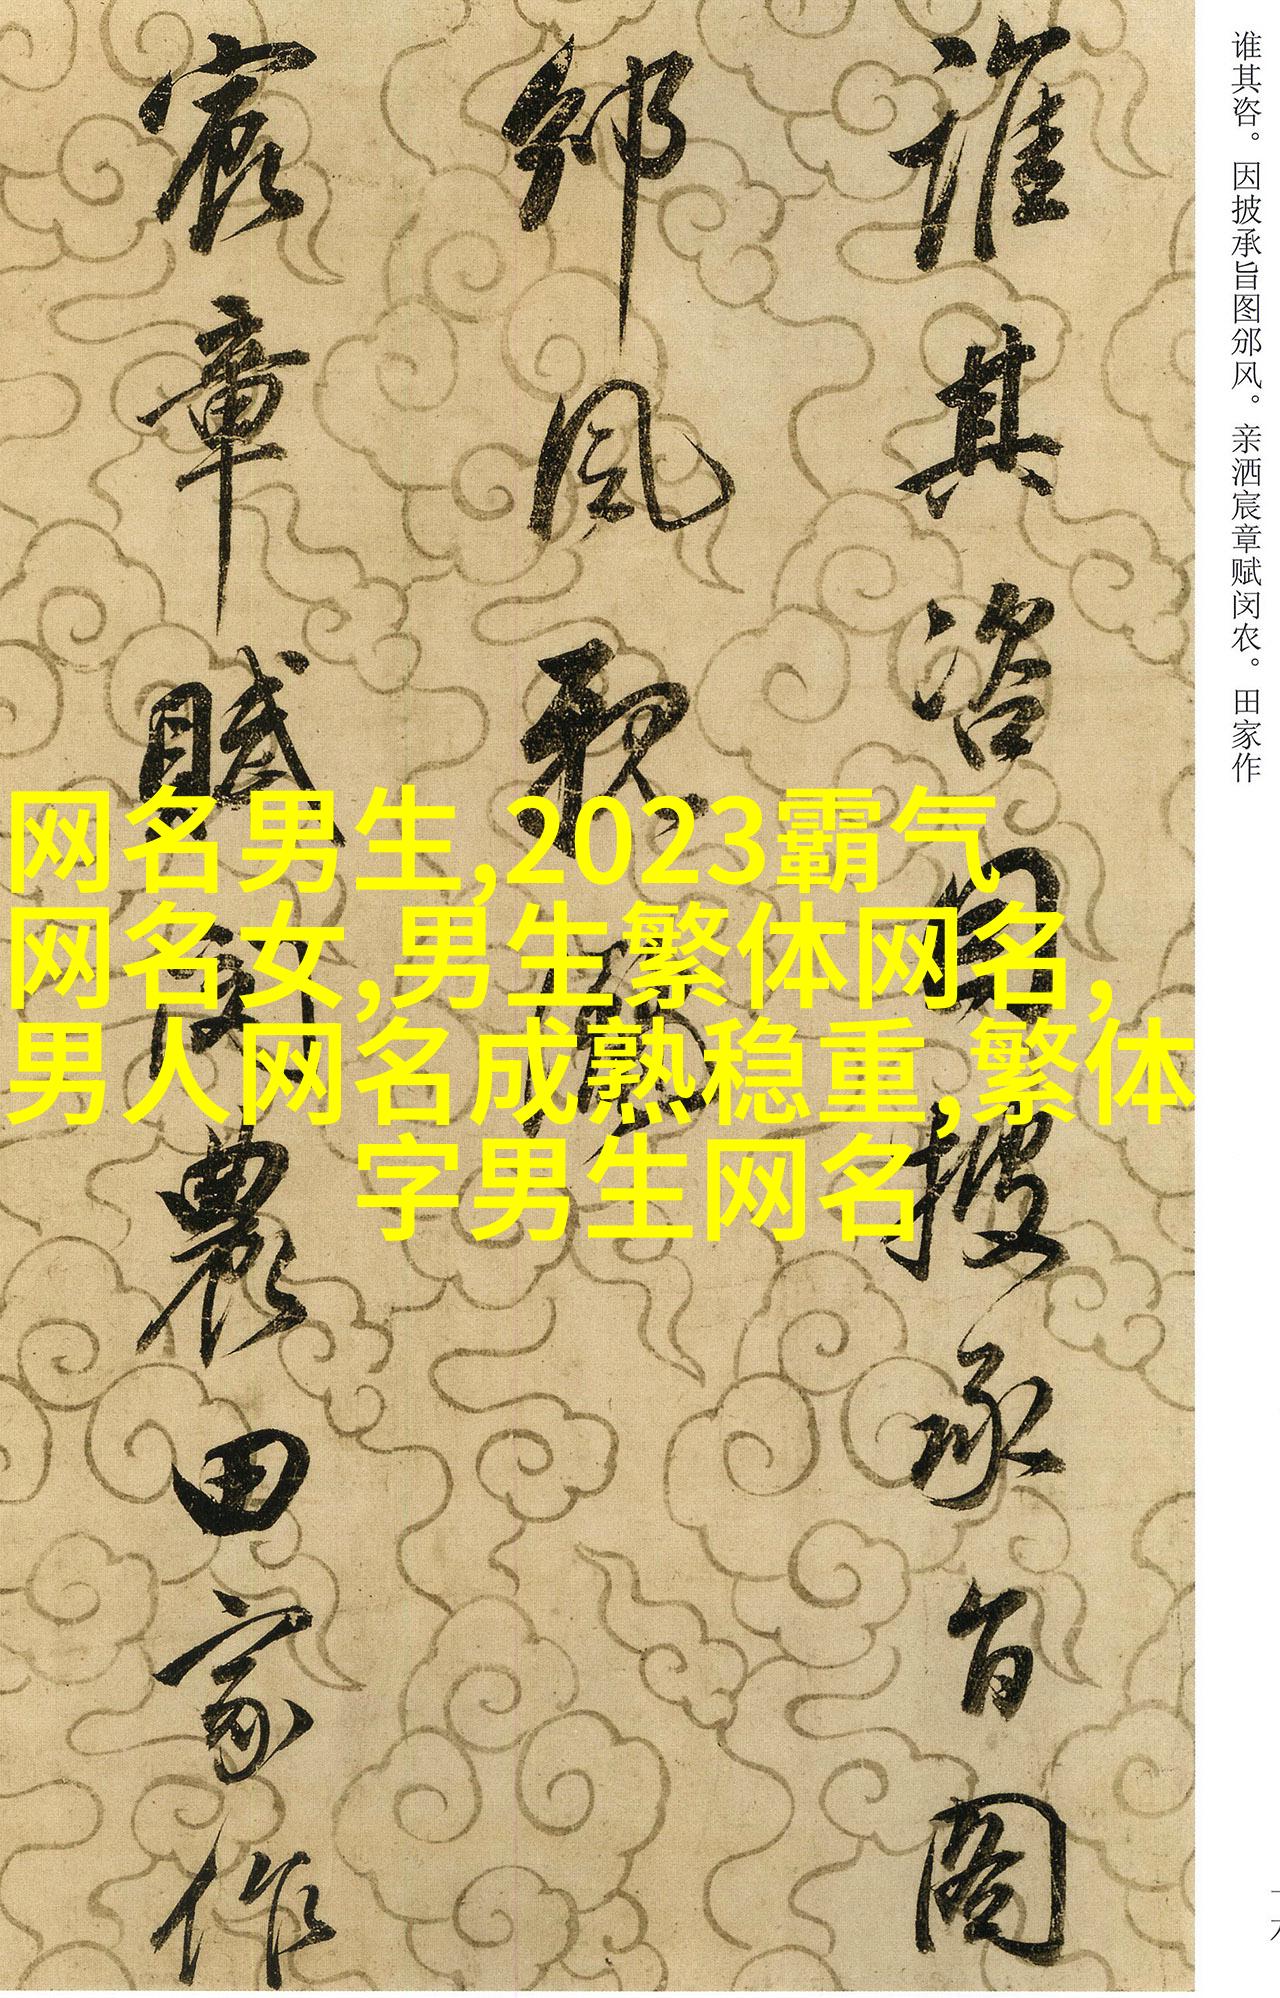 谁其咨。因披承旨图邠风。亲洒宸章赋闵农。田家作
誰其咨因披承旨圖
邠風親灑
宸章賦閔農田家作
网名男生,2023霸气
网名女,男生繁体网名,
男人网名成熟稳重,繁体
字男生网名